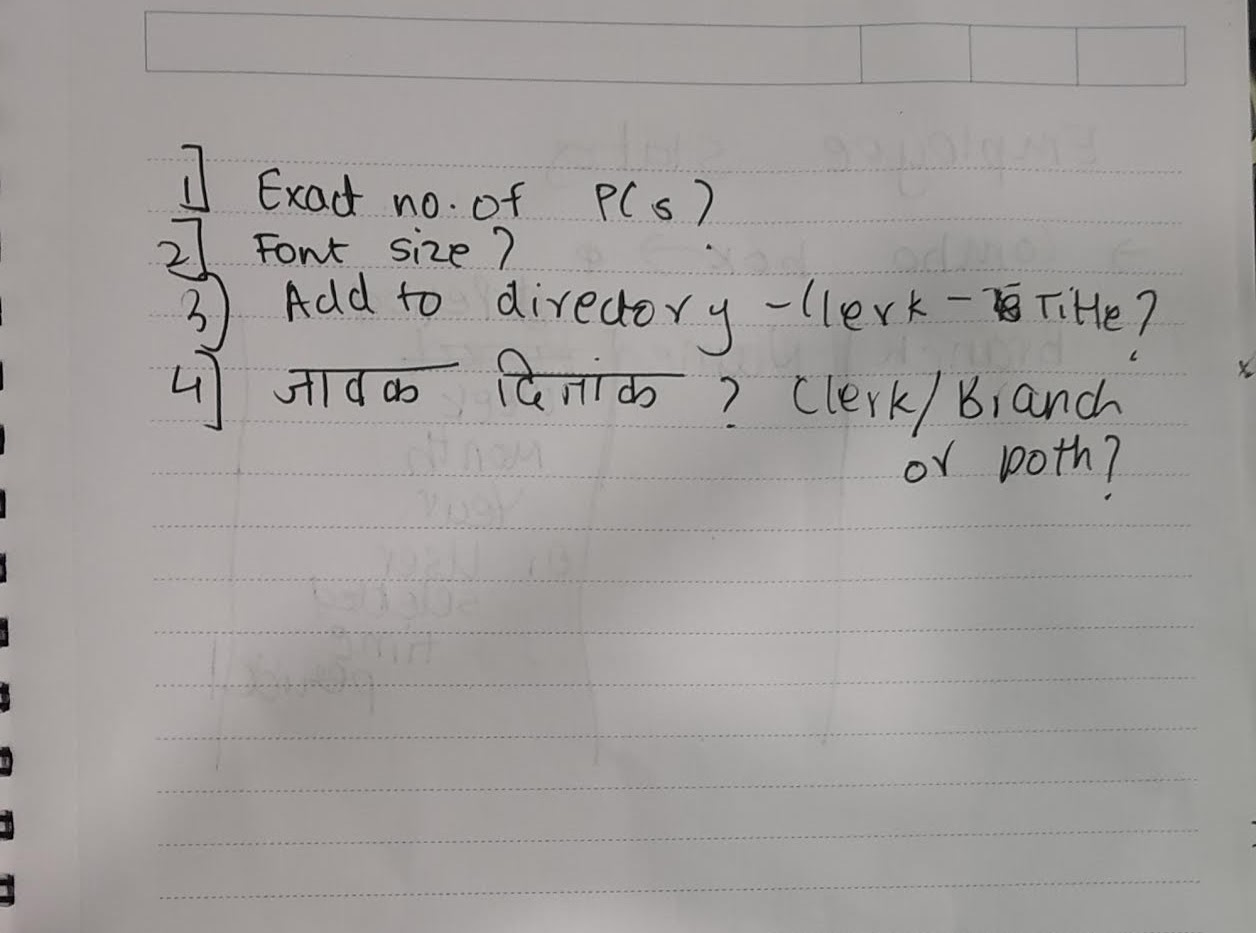 1] Exact no. of PCs?
2] Font size?
3) Add to directory - Clerk - Title?
4] जावक दिनांक ? Clerk/Branch
or both?